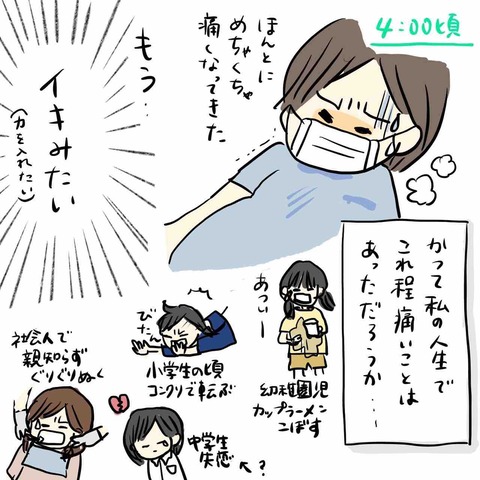 4:00頃
ほんとに
めちゃくちゃ
痛くなってきた
もう・
イキみたい
(力を入れたい)
かつて私の人生で
これ程痛いことは
あっただろうか・・・
あつぃー
幼稚園児
カップラーメン
こぼす
びたーん
小学生の頃
コンクリで転ぶ
中学生
失恋
←?
社会人で
親知らず
ぐりぐりぬく